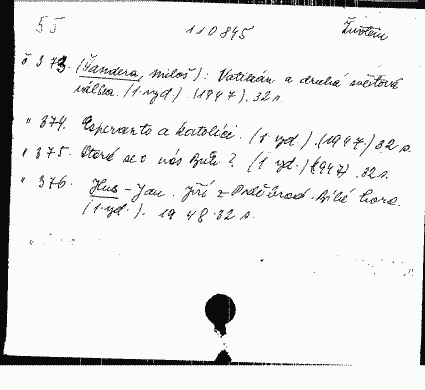 55 110845 Životem
č. 373. (Žandera, Miloš): Vatikán a druhá světová
válka. (1. vyd.). (1947). 32 s.
" 374. Esperanto a katolíci. (1 vyd.). (1947) 32 s.
" 375. se o nás Bůh? (1 vyd.) (1947). 32 s.
" 376. Hus - Jan. Jiří z Poděbrad. Bílá hora.
(1. vyd.). 1948. 32 s.